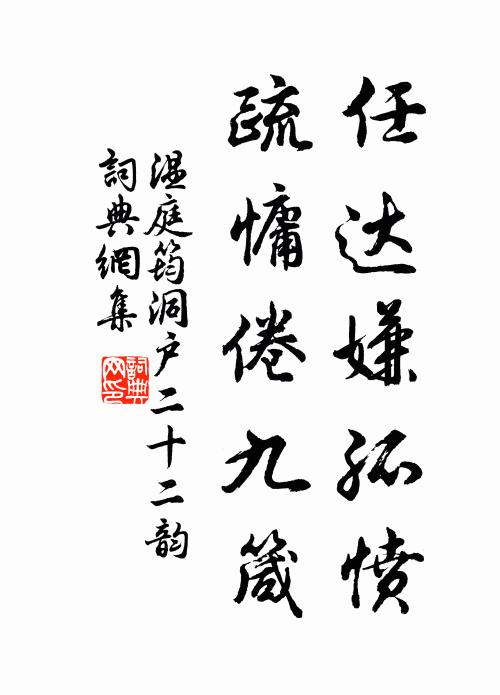 任达嫌孤愤
疏慵倦九箴
温庭筠洞户二十二韵
詞典網集
詞典網印